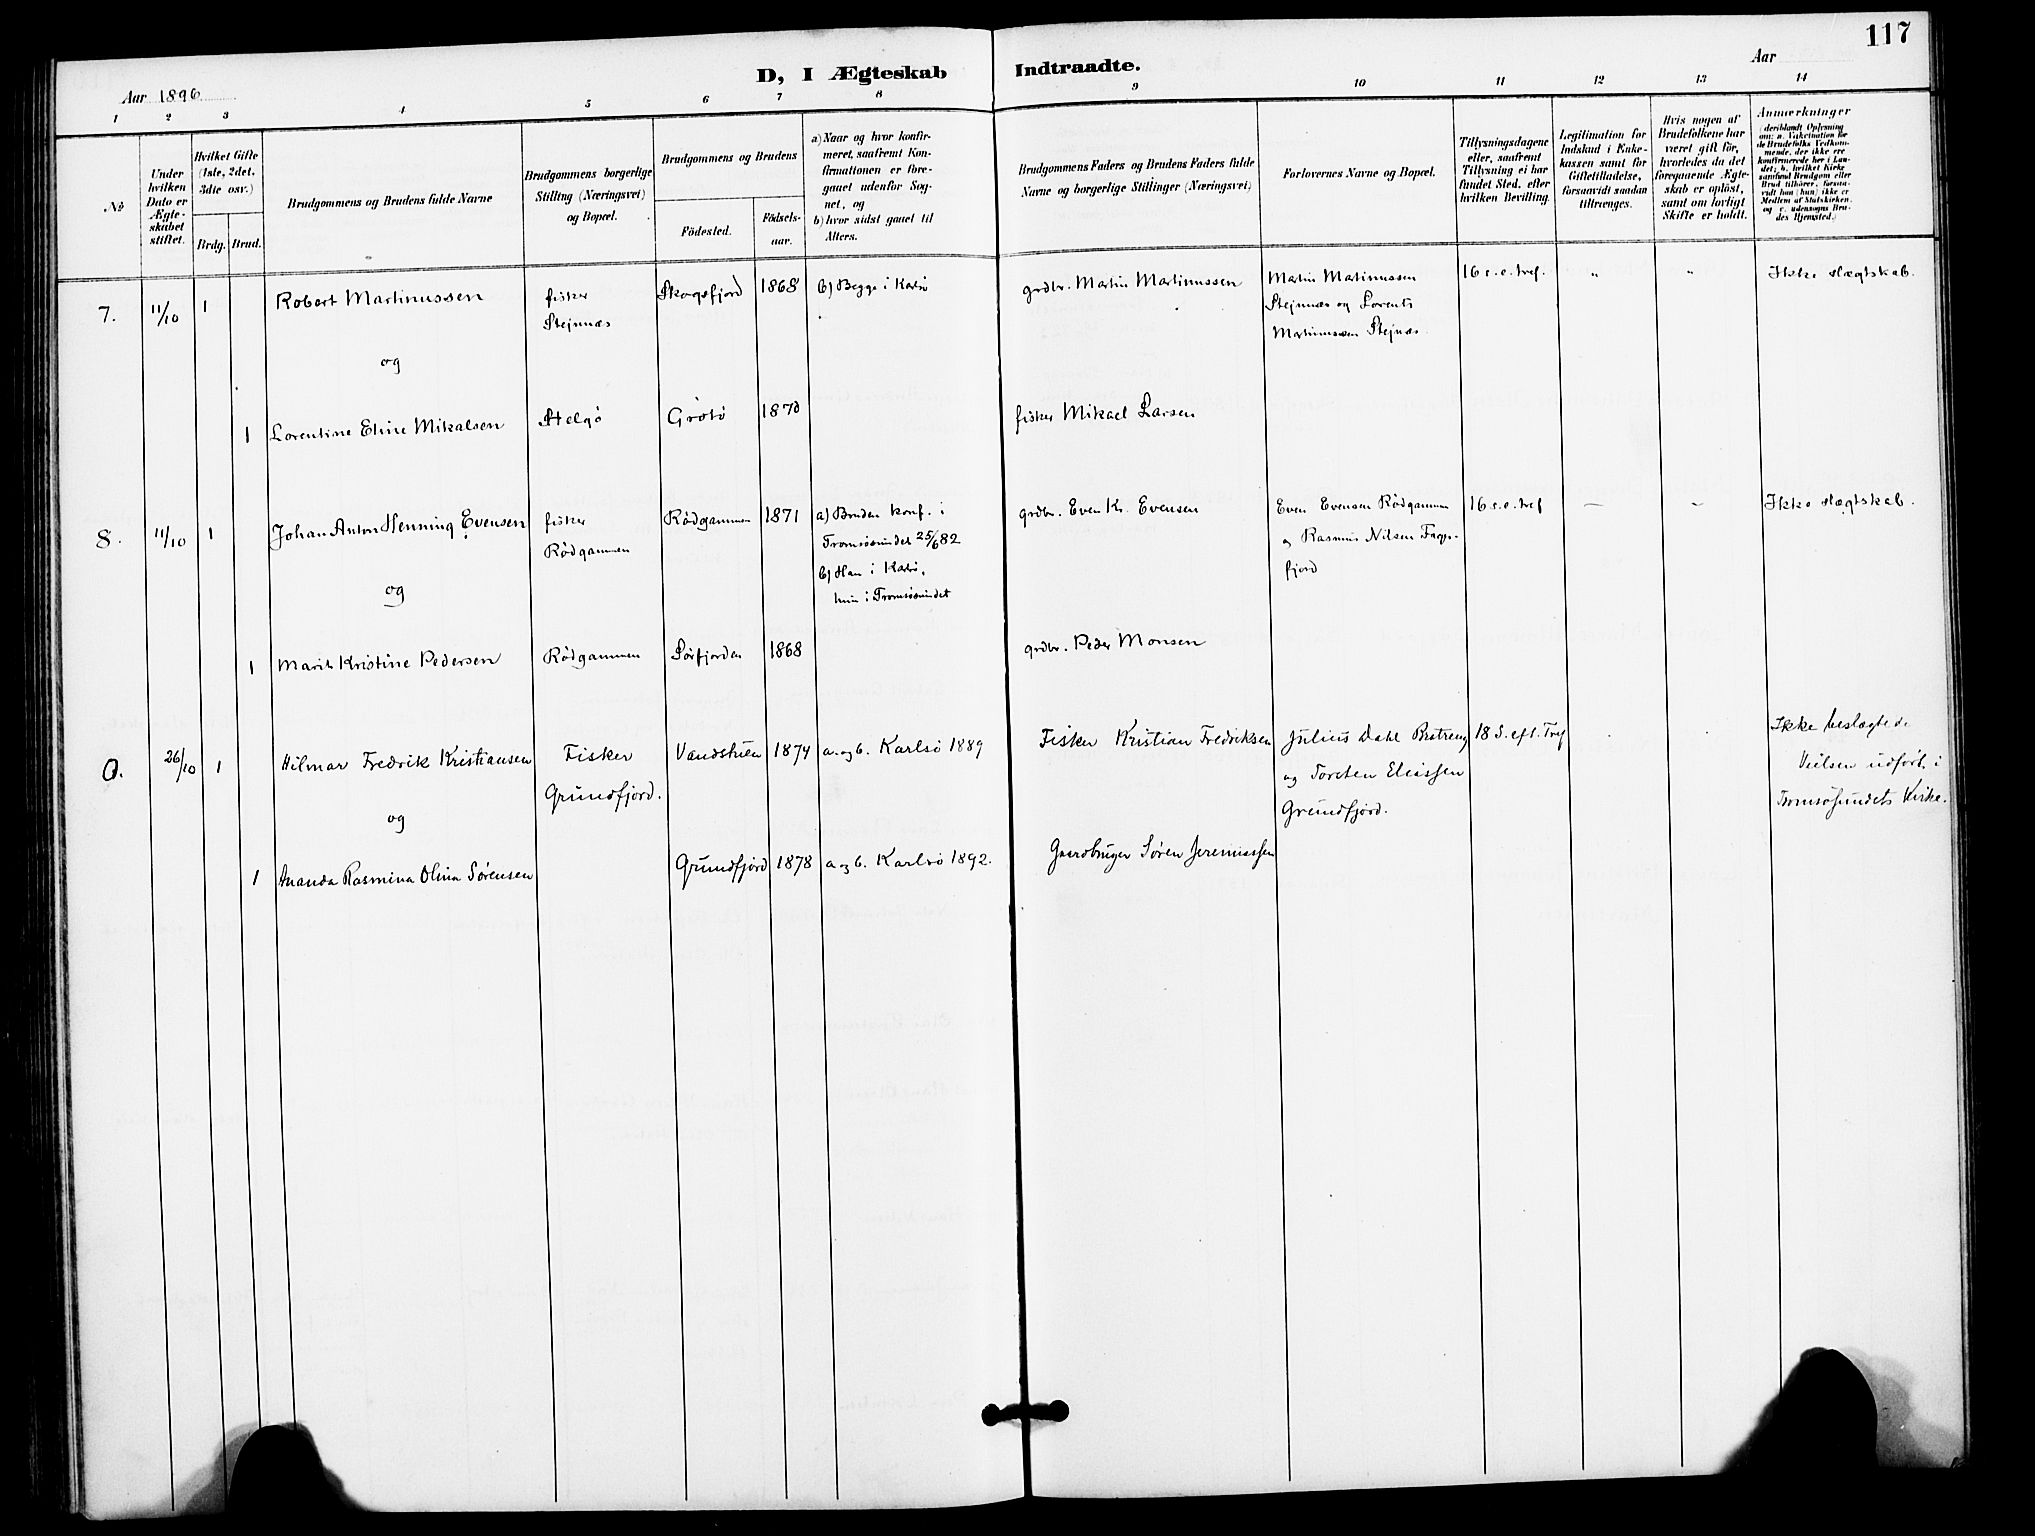 117
D, I Ægteskab Indtraadte.
Aar 1896
Aar
1 2 3 4 5 6 7 8 9 10 11 12 13 14
№
Under hvilken Dato er Ægteskabet stiftet.
Hvilket Gifte (1ste, 2det, 3die osv.)
Brdg. Brud.
Brudgommens og Brudens fulde Navne
Brudgommens borgerlige Stilling (Næringsvei) og Bopæl.
Brudgommens og Brudens
Födested.
Födsels-aar.
a) Naar og hvor konfir-
meret, saafremt Kon-
firmationen er fore-
gaaet udenfor Sog-
net, og
b) hvor sidst gaaet til
Alters.
Brudgommens Faders og Brudens Faders fulde
Navne og borgerlige Stillinger (Næringsvei)
Forlovernes Navne og Bopæl.
Tillysningsdagene
eller, saafremt
Tillysning ei har
fundet Sted, efter
hvilken Bevilling.
Legitimation for
Indskud i Enke-
kassen samt for
Giftetilladelse,
forsaavidt saadan
tiltrænges.
Hvis nogen af
Brudefolkene har
været gift før,
hvorledes da det
foregaaende Ægte-
skab er opløst,
samt om lovligt
Skifte er holdt.
Anmærkninger
(deriblandt Oplysning
om: a. Vakcination for
de Brudefolks Vedkom-
mende, der ikke ere
konfirmerede her i Lan-
det; b. hvilket Kirke-
samfund Brudgom eller
Brud tilhører, forsaa-
vidt han (hun) ikke er
Medlem af Statskirken,
og c. udensogns Bru-
des Hjemsted.)
7. 11/10 1 Robert Martinussen
fisker
Stejnnæs
Skogsfjord 1868 b) Begge i Karlsö
grdbr. Martin Martinussen
Martin Martinussen
Stejnnæs og Lorents
Martinussen Stejnæs
16 s.e. tref. " " Ikke slægtskab.
og
1 Lorentine Eline Mikalsen Helgö Grötö 1870 fisker Mikael Larsen
8. 11/10 1 Johan Anton Henning Evensen
fisker
Rödgammen
Rödgammen 1871
a) Bruden konf. i
Tromsösundet 25/6 82
b) Han i Karlsö,
hun i Tromsösundet
grdbr. Even Kr. Evensen
Even Evensen Rödgammen
og Rasmus Nilsen
fjord
16 s.e. tref — — Ikke slægtskab.
og
1 Marit Kristine Pedersen Rödgammen Sörfjorden 1868 grdbr. Peder Monsen
9. 26/10 1 Hilmar Fredrik Kristiansen
Fisker
Grundfjord.
Vandstuen 1874 a. og b. Karlsö 1889
Fisker Kristian Fredriksen
Julius Dahl
og Torsten Eliassen
Grundfjord.
18 S. eft. Tref
Ikke beslægtede
Vielsen udført i
Tromsösundets Kirke.
og
1 Ananda Rasmina Olina Sørensen Grundfjord 1878 a og b. Karlsö 1892.
Gaardbruger Sören Jeremiassen